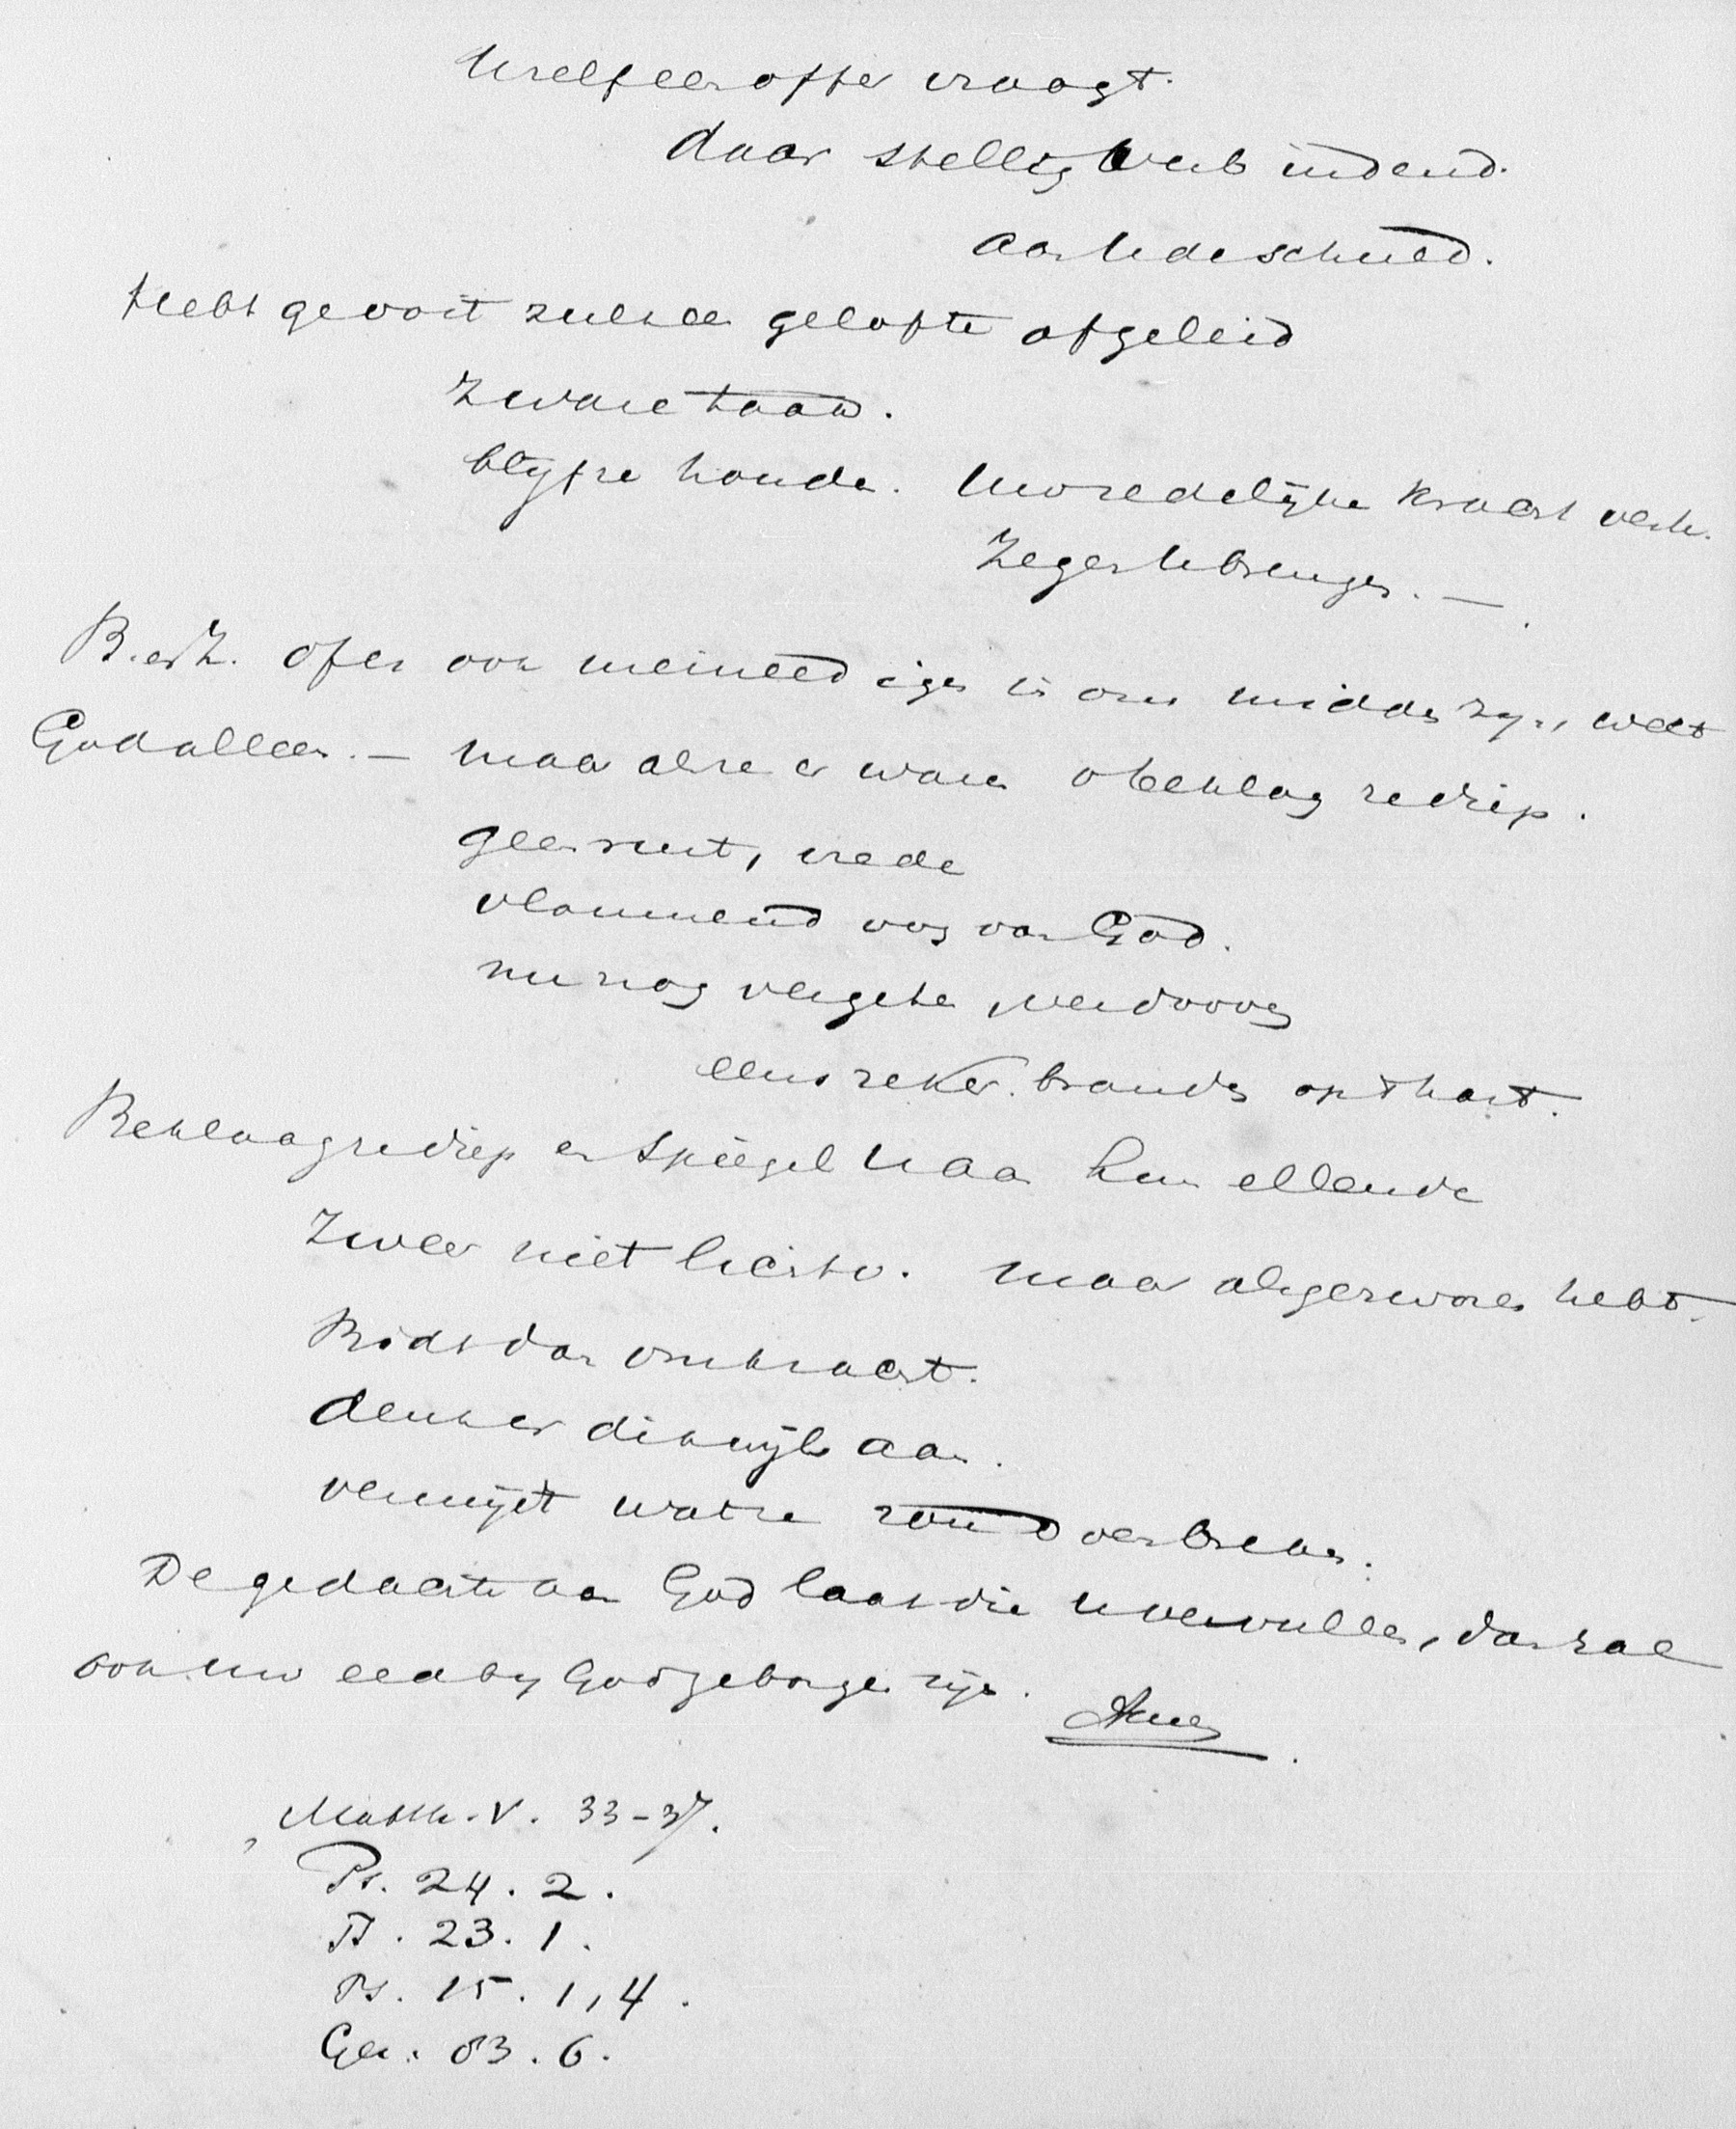 Uzelf een offer vraagt.
daar stellig verbindend.
aan U de schuld.
Hebt ge ooit zulk een gelofte afgeleid
zware taak.
blijf ze houden. Uw zedelijke kracht verh.
Zegen U brengen. —
B. en Z. of er ook meineedigen in ons midden zijn, weet
God alleen. — maar als ze er waren o beklag ze diep.
geen rust, vrede
vlammend oog van God.
nu nog vergeten, verdoovg
eens zeker. brandg op 't hart.
Beklaag ze diep en spiegel U aan hun ellende
Zweer niet licht v. maar als gezworen hebt.
Bidt dan om kracht.
denk er dikwijls aan.
vermijdt wat ze zou doen breken.
De gedachte aan God laat die U vervullen, dan zal
ook uw eed bij God geborgen zijn. Amen
Matth. V. 33-37.
Ps. 24. 2.
Ps. 23. 1.
Ps. 15. 1, 4.
Gez. 83. 6.